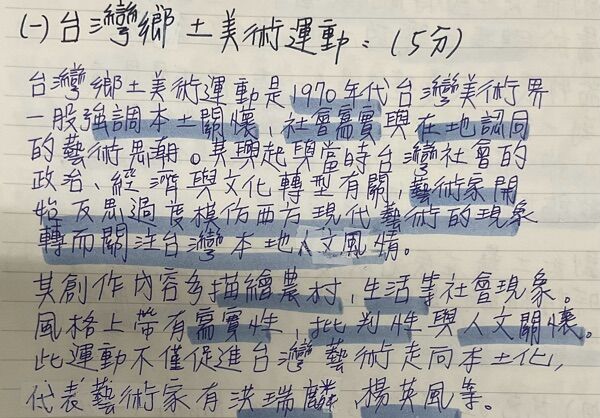 (一)台灣鄉土美術運動：(5分)
台灣鄉土美術運動是1970年代台灣美術界
一股強調本土關懷、社會寫實與在地認同
的藝術思潮。其興起與當時台灣社會的
政治、經濟與文化轉型有關，藝術家開
始反思過度模仿西方現代藝術的現象
轉而關注台灣本地人文風情。
其創作內容多描繪農村、生活等社會現象。
風格上帶有寫實性、批判性與人文關懷。
此運動不僅促進台灣藝術走向本土化，
代表藝術家有洪瑞麟、楊英風等。